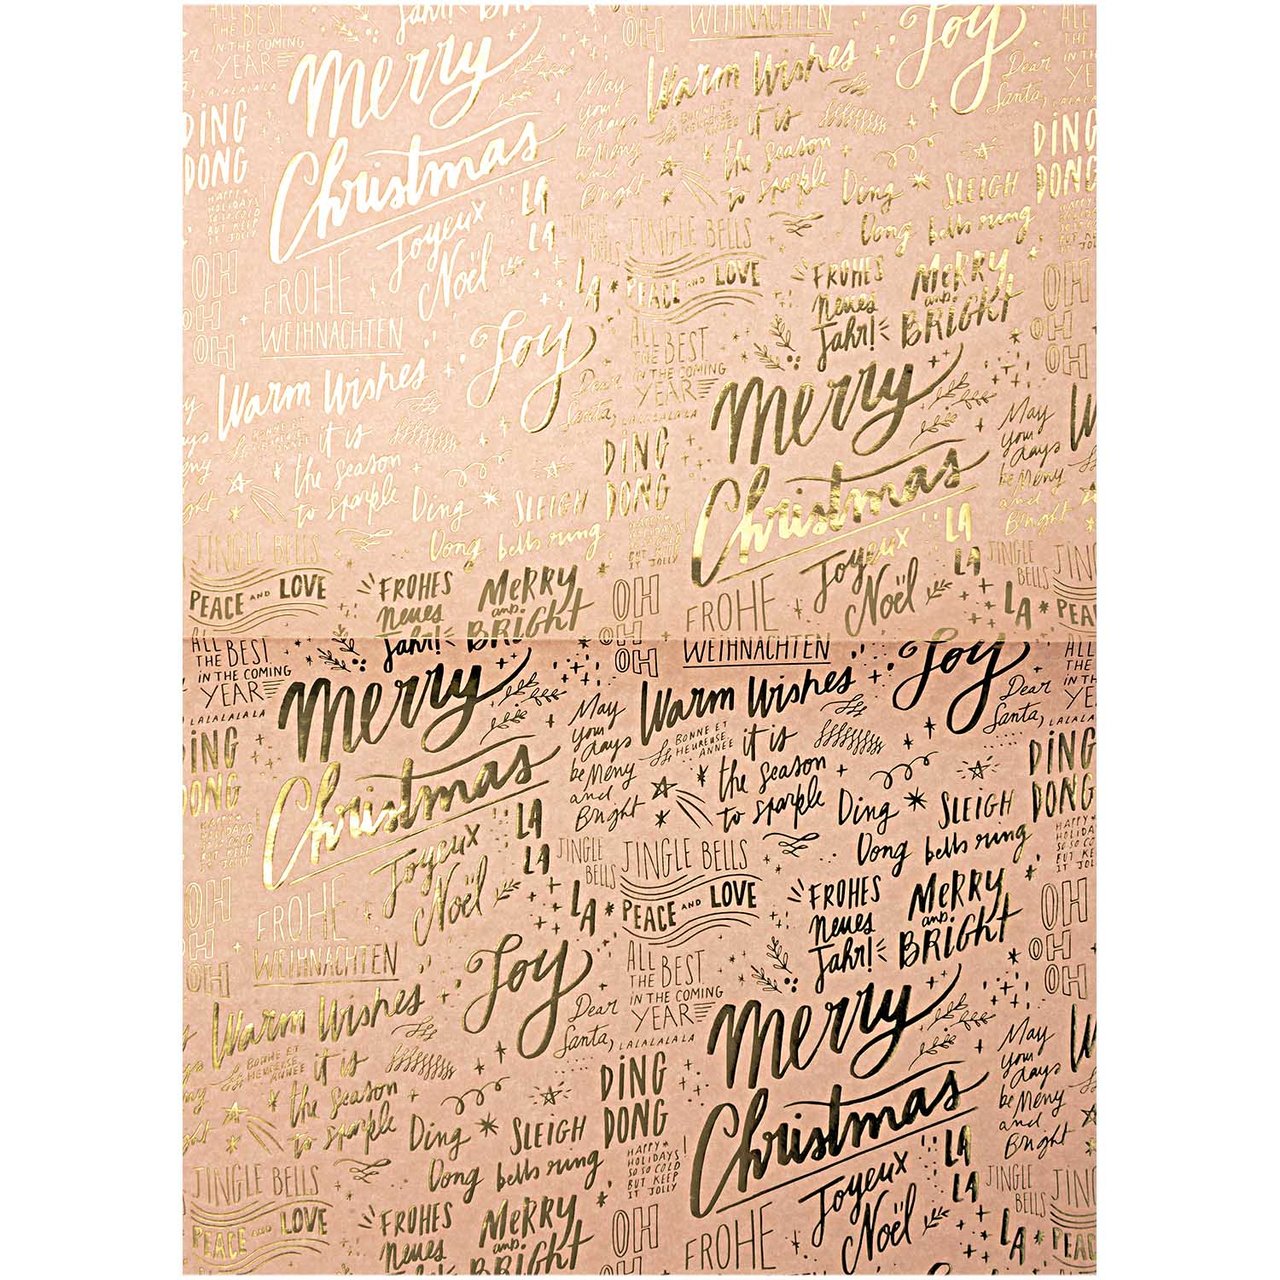 Jahr!
BRIGHT
OH
OH
WEIHNACHTEN
Joy
ALL
THE BEST
IN THE COMING
YEAR
LALALALALA
Merry
Christmas
Warm Wishes
Dear
Santa,
ALL
THE
IN T
YE
LALALA
DING
DONG
May
your
days
be Merry
and
Bright
BONNE ET
HEUREUSE
ANNÉE
it is
the season
to sparkle
Ding
Dong
SLEIGH
bells ring
DING
DONG
HAPPY
HOLIDAYS
SO SO COLD
BUT KEEP
IT JOLLY
LA
LA
LA
Joyeux
Noël
JINGLE
BELLS
JINGLE BELLS
PEACE AND LOVE
FROHES
neues
Jahr!
MERRY
and
BRIGHT
OH
OH
OH
OH
OH
OH
FROHE
WEIHNACHTEN
Joy
Warm Wishes
ALL
THE BEST
IN THE COMING
YEAR
LALALALALA
Dear
Santa,
Merry
Christmas
May
your
days
be Merry
and
Bright
BONNE ET
HEUREUSE
ANNÉE
it is
the season
to sparkle
Ding
Dong
SLEIGH
bells ring
DING
DONG
HAPPY
HOLIDAYS
SO SO COLD
BUT KEEP
IT JOLLY
LA
LA
LA
Joyeux
Noël
JINGLE
BELLS
JINGLE BELLS
PEACE AND LOVE
FROHES
neues
Jahr!
MERRY
and
BRIGHT
OH
OH
OH
FROHE
WEIHNACHTEN
ALL
THE BEST
IN THE COMING
YEAR
LALALALALA
Merry
Christmas
May
your
days
be Merry
and
Bright
Warm Wishes
Joy
Dear
Santa,
BONNE ET
HEUREUSE
ANNÉE
it is
the season
to sparkle
Ding
Dong
SLEIGH
bells ring
DING
DONG
DING
DONG
HAPPY
HOLIDAYS
SO SO COLD
BUT KEEP
IT JOLLY
LA
LA
LA
Joyeux
Noël
JINGLE
BELLS
JINGLE BELLS
PEACE AND LOVE
FROHES
neues
Jahr!
MERRY
and
BRIGHT
OH
OH
OH
OH
OH
OH
FROHE
WEIHNACHTEN
Joy
Warm Wishes
ALL
THE BEST
IN THE COMING
YEAR
LALALALALA
Dear
Santa,
Merry
Christmas
May
your
days
be Merry
and
Bright
BONNE ET
HEUREUSE
ANNÉE
it is
the season
to sparkle
Ding
Dong
SLEIGH
bells ring
DING
DONG
HAPPY
HOLIDAYS
SO SO COLD
BUT KEEP
IT JOLLY
LA
LA
LA
Joyeux
Noël
JINGLE
BELLS
JINGLE BELLS
PEACE AND LOVE
FROHES
neues
MERRY
and
BRIGHT
OH
FROHE